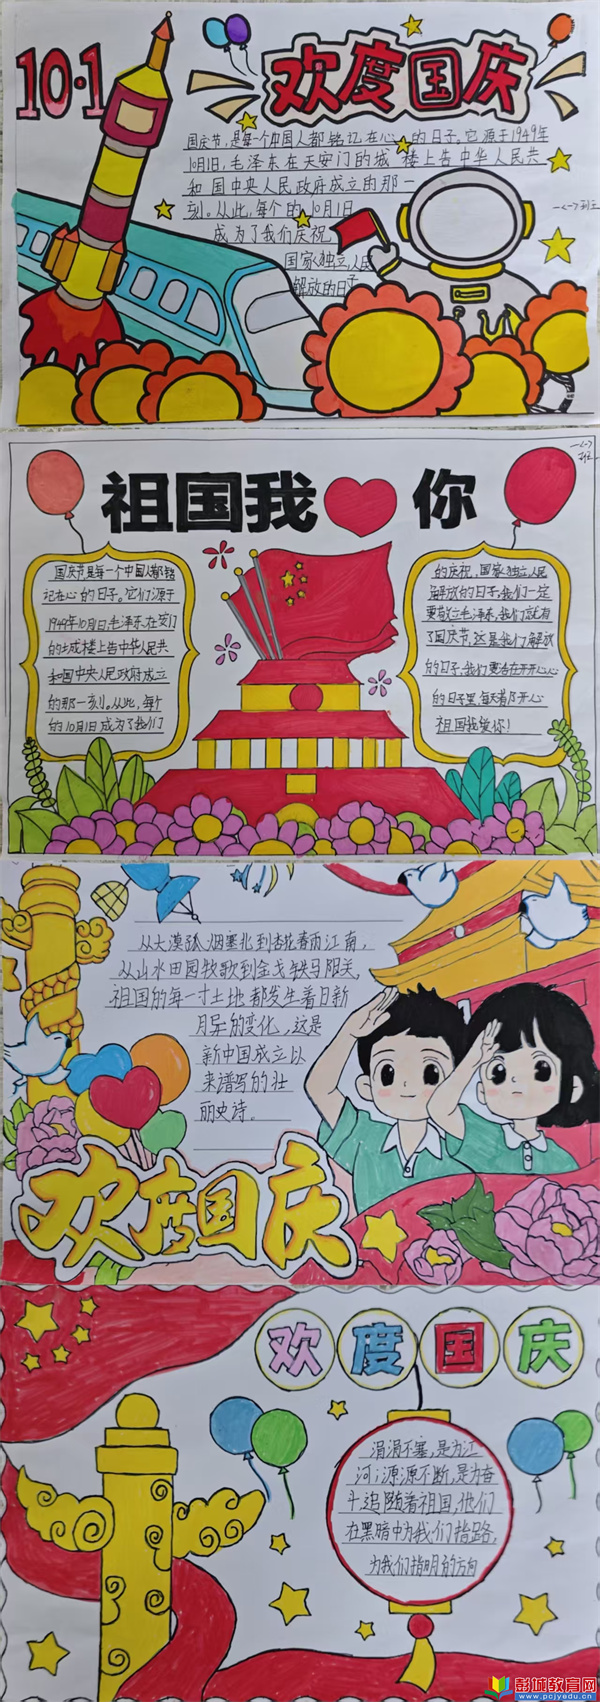 10·1
欢度国庆
国庆节,是每一个中国人都铭记在心的日子。它源于1949年
10月1日,毛泽东在天安门的城楼上告中华人民共
和国中央人民政府成立的那一
刻。从此,每个的10月1日
成为了我们庆祝
国家独立,人民
解放的日子
祖国我 你
国庆节是每一个中国人都铭
记在心的日子。它们源于
1949年10月1日,毛泽东在安门
的土成楼上告中华人民共
和国中央人民政府成立
的那一刻。从此,每个
的10月1日成为了我们
的庆祝,国家独立人民
解放的日子,我们一定
要敬立毛泽东,我们就有
了国庆节,这是我们解放
的日子,我们要活在开开心心
的日子里,每天都开心
祖国我爱你!
从大漠孤烟塞北到杏花春雨江南,
从山水田园牧歌到金戈铁马阳关,
祖国的每一寸土地都发生着日新
月异的变化,这是
新中国成立以
来谱写的壮
丽史诗。
欢度国庆
欢度国庆
涓涓不塞,是为江
河;源源不断,是为奋
斗追随着祖国,他们
在黑暗中为我们指路,
为我们指明的方向
彭城教育网
www.pcjyedu.cn